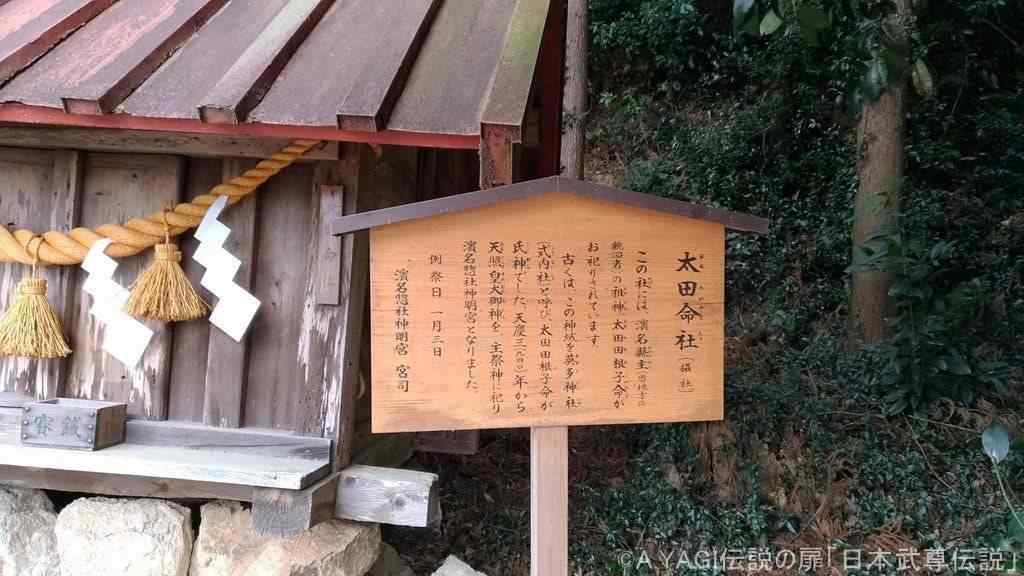 太田命社（摂社）
この社には、濱名縣主
統治者の祖神 太田田根子命が
お祀りされています。
古くは、この神域を英多神社
（式内社）と呼び、太田田根子命が
氏神でした。天慶三（九四〇）年から
天照皇大御神を、主祭神に祀り
濱名惣社神明宮となりました。
例祭日 一月三日
濱名惣社神明宮 宮司
©A.YAGI伝説の扉「日本武尊伝説」